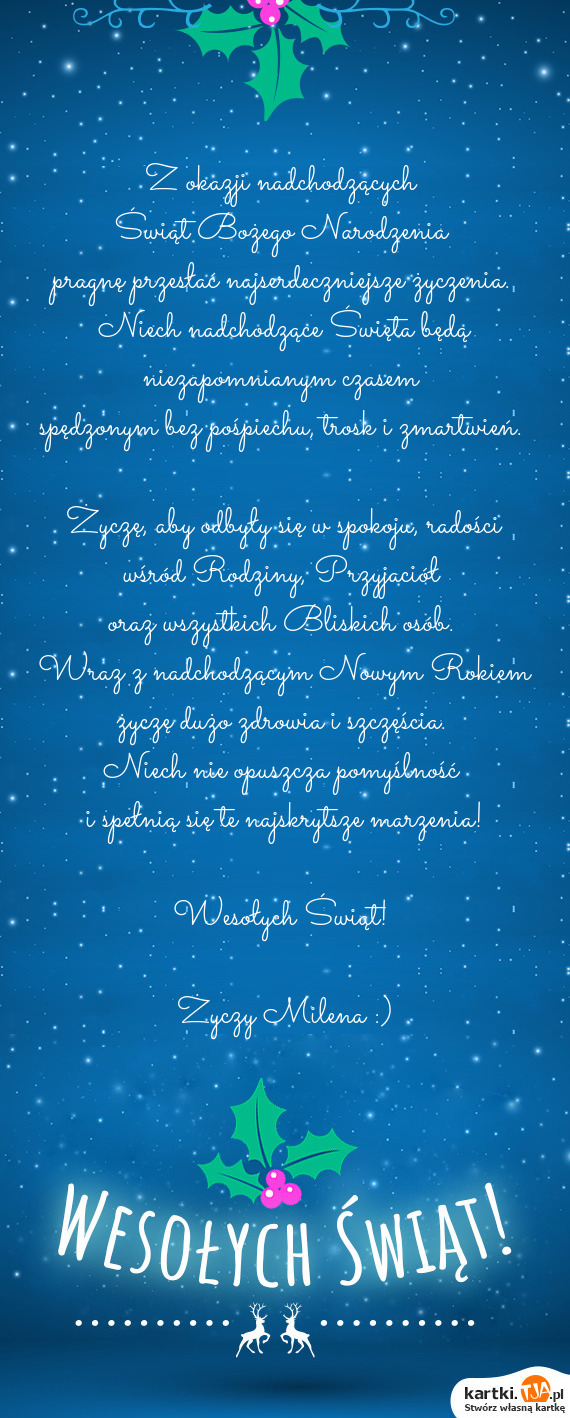 Z okazji nadchodzących
Świąt Bożego Narodzenia
pragnę przesłać najserdeczniejsze życzenia.
Niech nadchodzące Święta będą
niezapomnianym czasem
spędzonym bez pośpiechu, trosk i zmartwień.
Życzę, aby odbyły się w spokoju, radości
wśród Rodziny, Przyjaciół
oraz wszystkich Bliskich osób.
Wraz z nadchodzącym Nowym Rokiem
życzę dużo zdrowia i szczęścia.
Niech nie opuszcza pomyślność
i spełnią się te najskrytsze marzenia!
Wesołych Świąt!
Życzy Milena :)
Wesołych Świąt!
kartki.TJA.pl
Stwórz własną kartkę